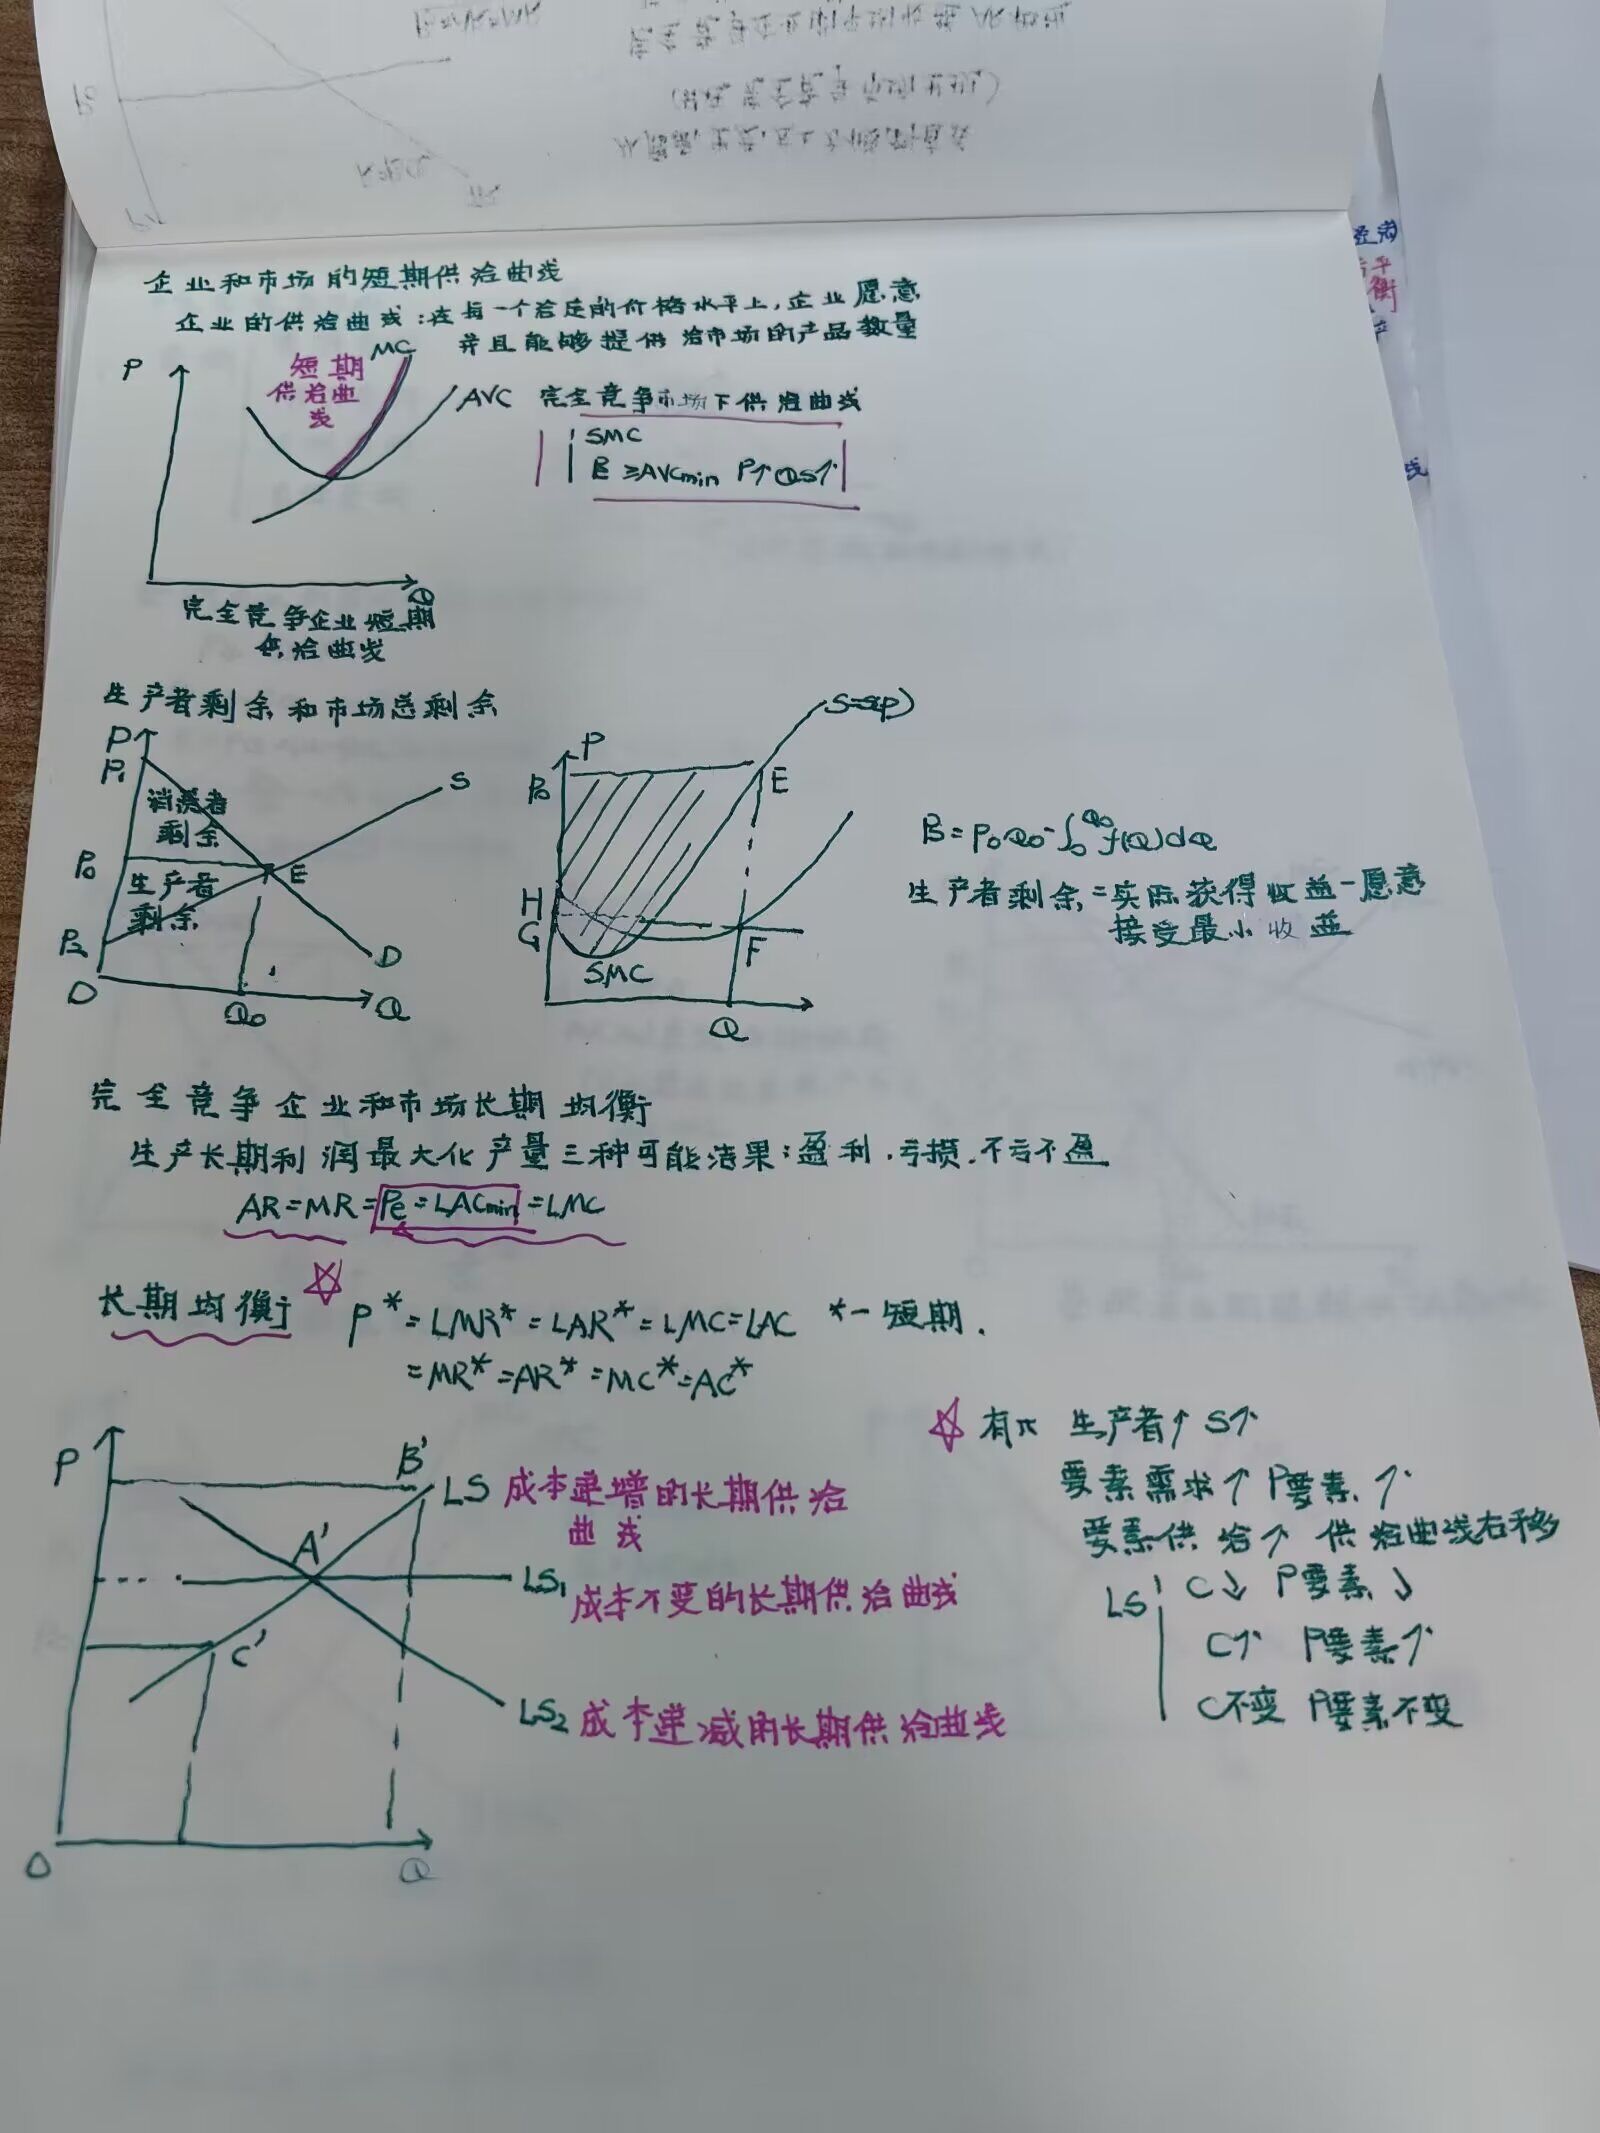 企业和市场的短期供给曲线
企业的供给曲线:在每一个给定的价格水平上,企业愿意
并且能够提供给市场的产品数量
P
短期
供给曲
线
MC
AVC
完全竞争市场下供给曲线
SMC
P ≥AVCmin P↑ QS↑
Q
完全竞争企业短期
供给曲线
生产者剩余和市场总剩余
P
P₁
消费者
剩余
S
P₀
生产者
剩余
E
P₂
D
O
Q₀
Q
S=S(P)
P
P₀
E
H
G
SMC
F
Q
B=P₀Q₀-∫₀^Q₀ f(Q)dQ
生产者剩余=实际获得收益-愿意
接受最小收益
完全竞争企业和市场长期均衡
生产长期利润最大化产量三种可能结果:盈利.亏损.不亏不盈
AR=MR=Pe=LACmin=LMC
长期均衡 ☆ P*=LMR*=LAR*=LMC=LAC *-短期.
=MR*=AR*=MC*=AC*
P
B'
LS 成本递增的长期供给
曲线
A'
LS₁ 成本不变的长期供给曲线
C'
LS₂ 成本递减的长期供给曲线
O
Q
☆ 有π 生产者↑ S↑
要素需求↑ P要素↑
要素供给↑ 供给曲线右移
LS C↓ P要素↓
C↑ P要素↑
C不变 P要素不变